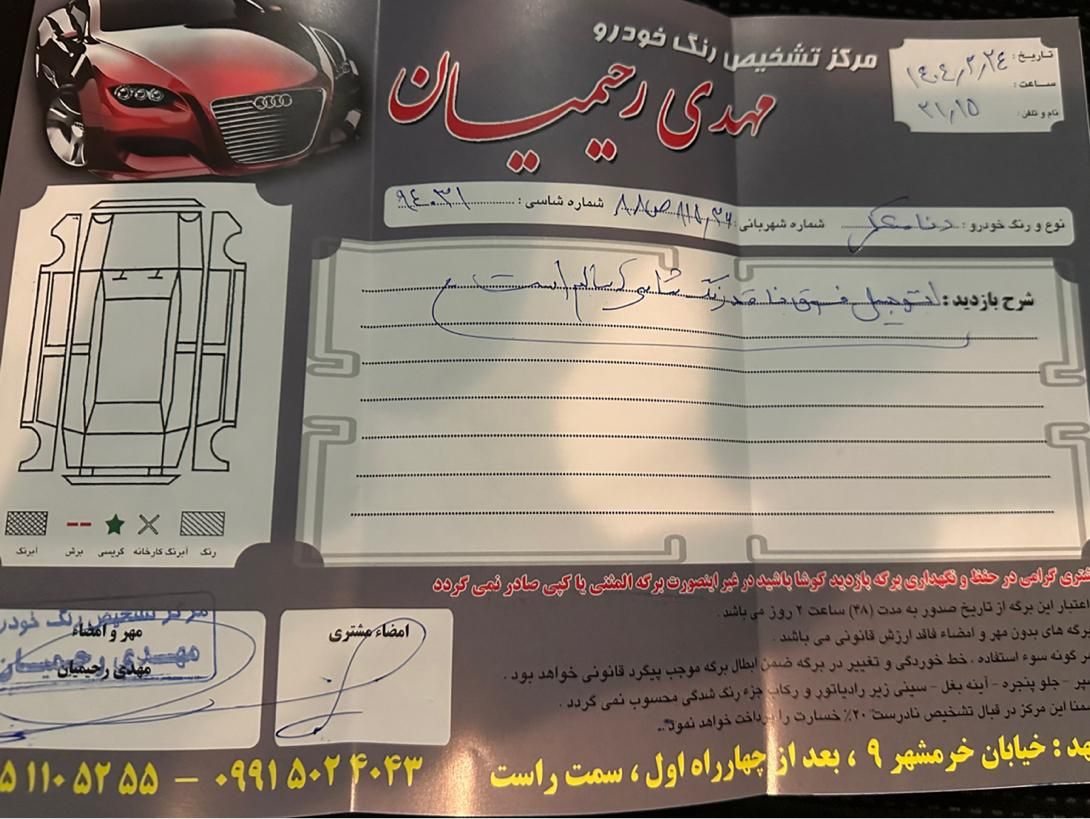 مرکز تشخیص رنگ خودرو
مهدی رحیمیان
تاریخ: ۱۴۰۴٫۲٫۲۴
ساعت: ۲۱٫۱۵
نام و تلفن:
نوع و رنگ خودرو: دنا مشکی شماره شهربانی: شماره شاسی:
شرح بازدید: اتومبیل فوق فاقد رنگ شاسی ها سالم است
رنگ آبرنگ کارخانه گریسی برش آبرنگ
شتری گرامی در حفظ و نگهداری برگه بازدید کوشا باشید در غیر اینصورت برگه المثنی یا کپی صادر نمی گردد
اعتبار این برگه از تاریخ صدور به مدت (۴۸) ساعت ۲ روز می باشد .
برگه های بدون مهر و امضاء فاقد ارزش قانونی می باشد .
هر گونه سوء استفاده ، خط خوردگی و تغییر در برگه ضمن ابطال برگه موجب پیگرد قانونی خواهد بود .
سپر - جلو پنجره - آینه بغل - سینی زیر رادیاتور و رکاب جزء رنگ شدگی محسوب نمی گردد .
ضمنا این مرکز در قبال تشخیص نادرست ۲۰٪ خسارت را پرداخت خواهد نمود.
امضاء مشتری
مهر و امضاء
مهدی رحیمیان
مرکز تشخیص رنگ خودرو
مهدی رحیمیان
هد : خیابان خرمشهر ۹ ، بعد از چهارراه اول ، سمت راست
۵ ۱۱۰ ۵۲ ۵۵ - ۰۹۹۱ ۵۰۲ ۴۰۴۳